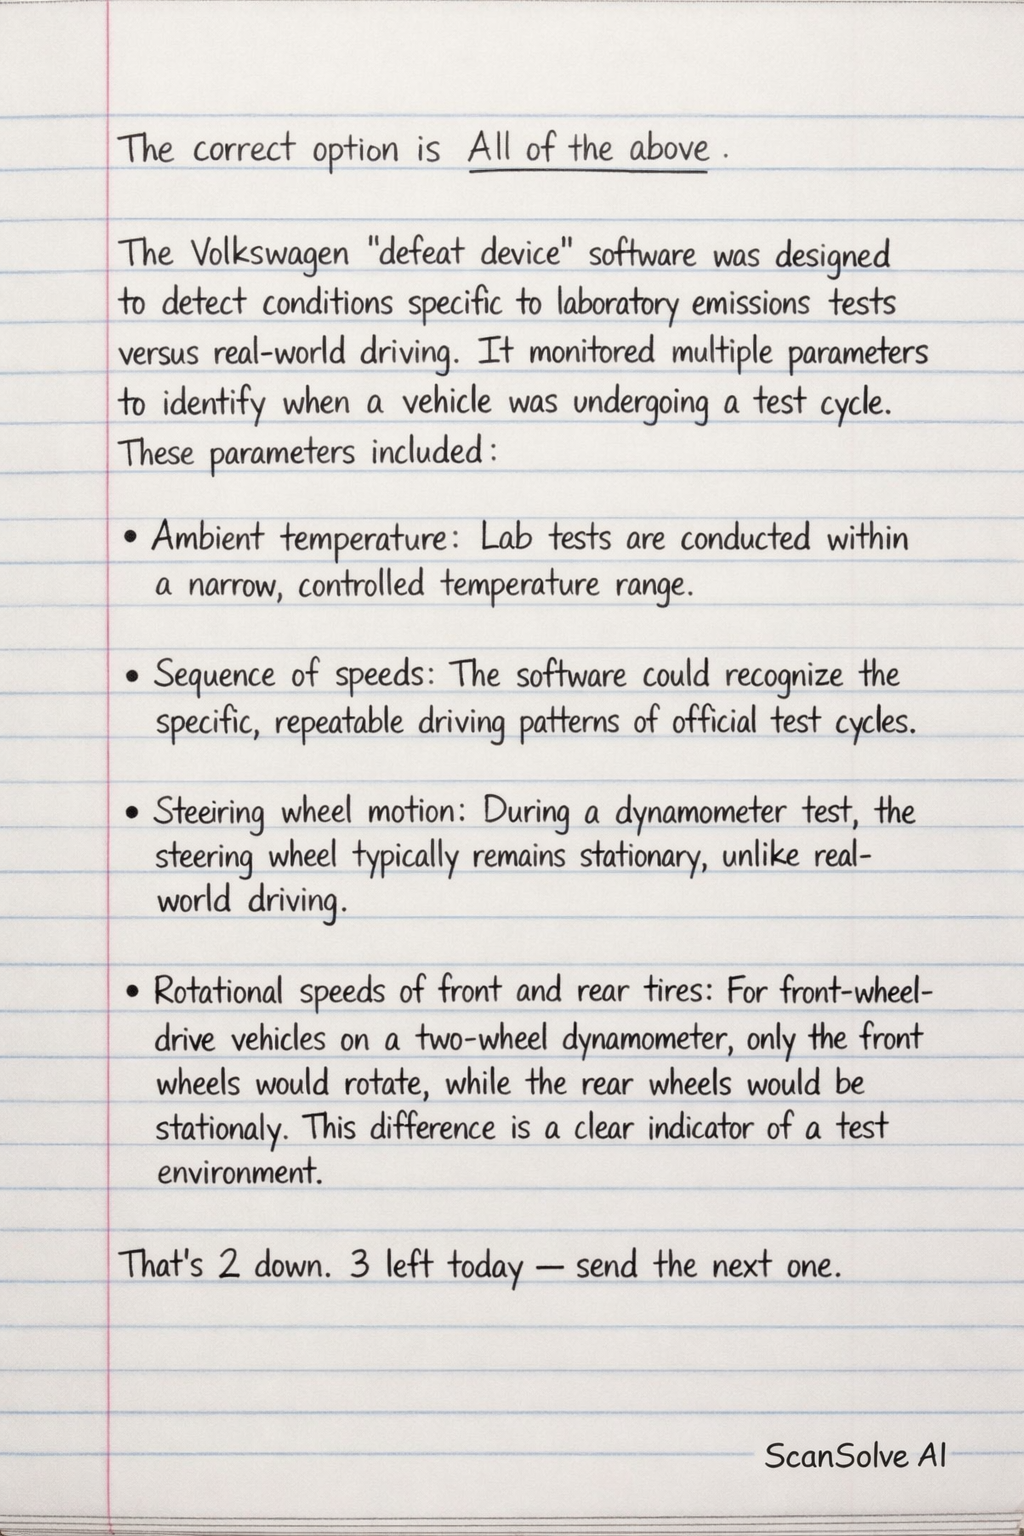 The correct option is All of the above.
The Volkswagen "defeat device" software was designed
to detect conditions specific to laboratory emissions tests
versus real-world driving. It monitored multiple parameters
to identify when a vehicle was undergoing a test cycle.
These parameters included:
• Ambient temperature: Lab tests are conducted within
a narrow, controlled temperature range.
• Sequence of speeds: The software could recognize the
specific, repeatable driving patterns of official test cycles.
• Steeiring wheel motion: During a dynamometer test, the
steering wheel typically remains stationary, unlike real-
world driving.
• Rotational speeds of front and rear tires: For front-wheel-
drive vehicles on a two-wheel dynamometer, only the front
wheels would rotate, while the rear wheels would be
stationaly. This difference is a clear indicator of a test
environment.
That's 2 down. 3 left today — send the next one.
ScanSolve AI